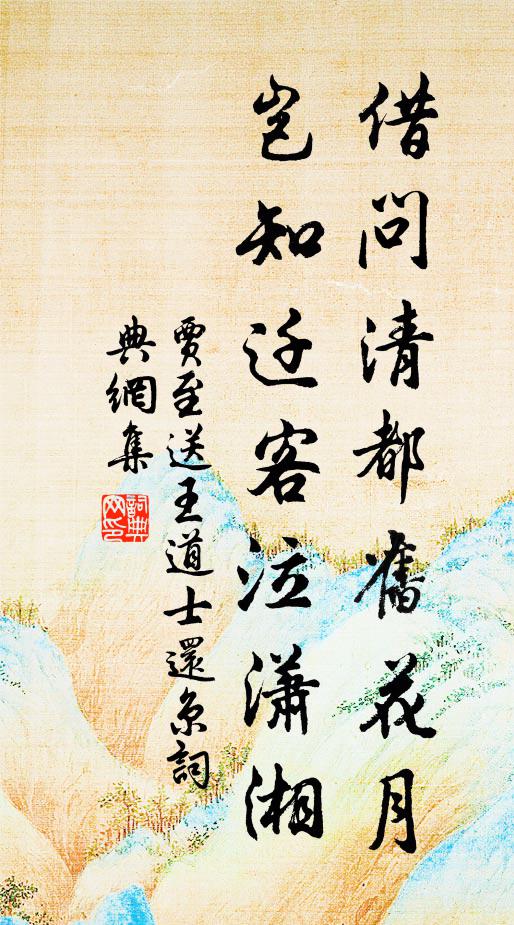 借问清都舊花月
岂知迁客泣潇湘
賈至送王道士還京詞
典網集
詞典網印